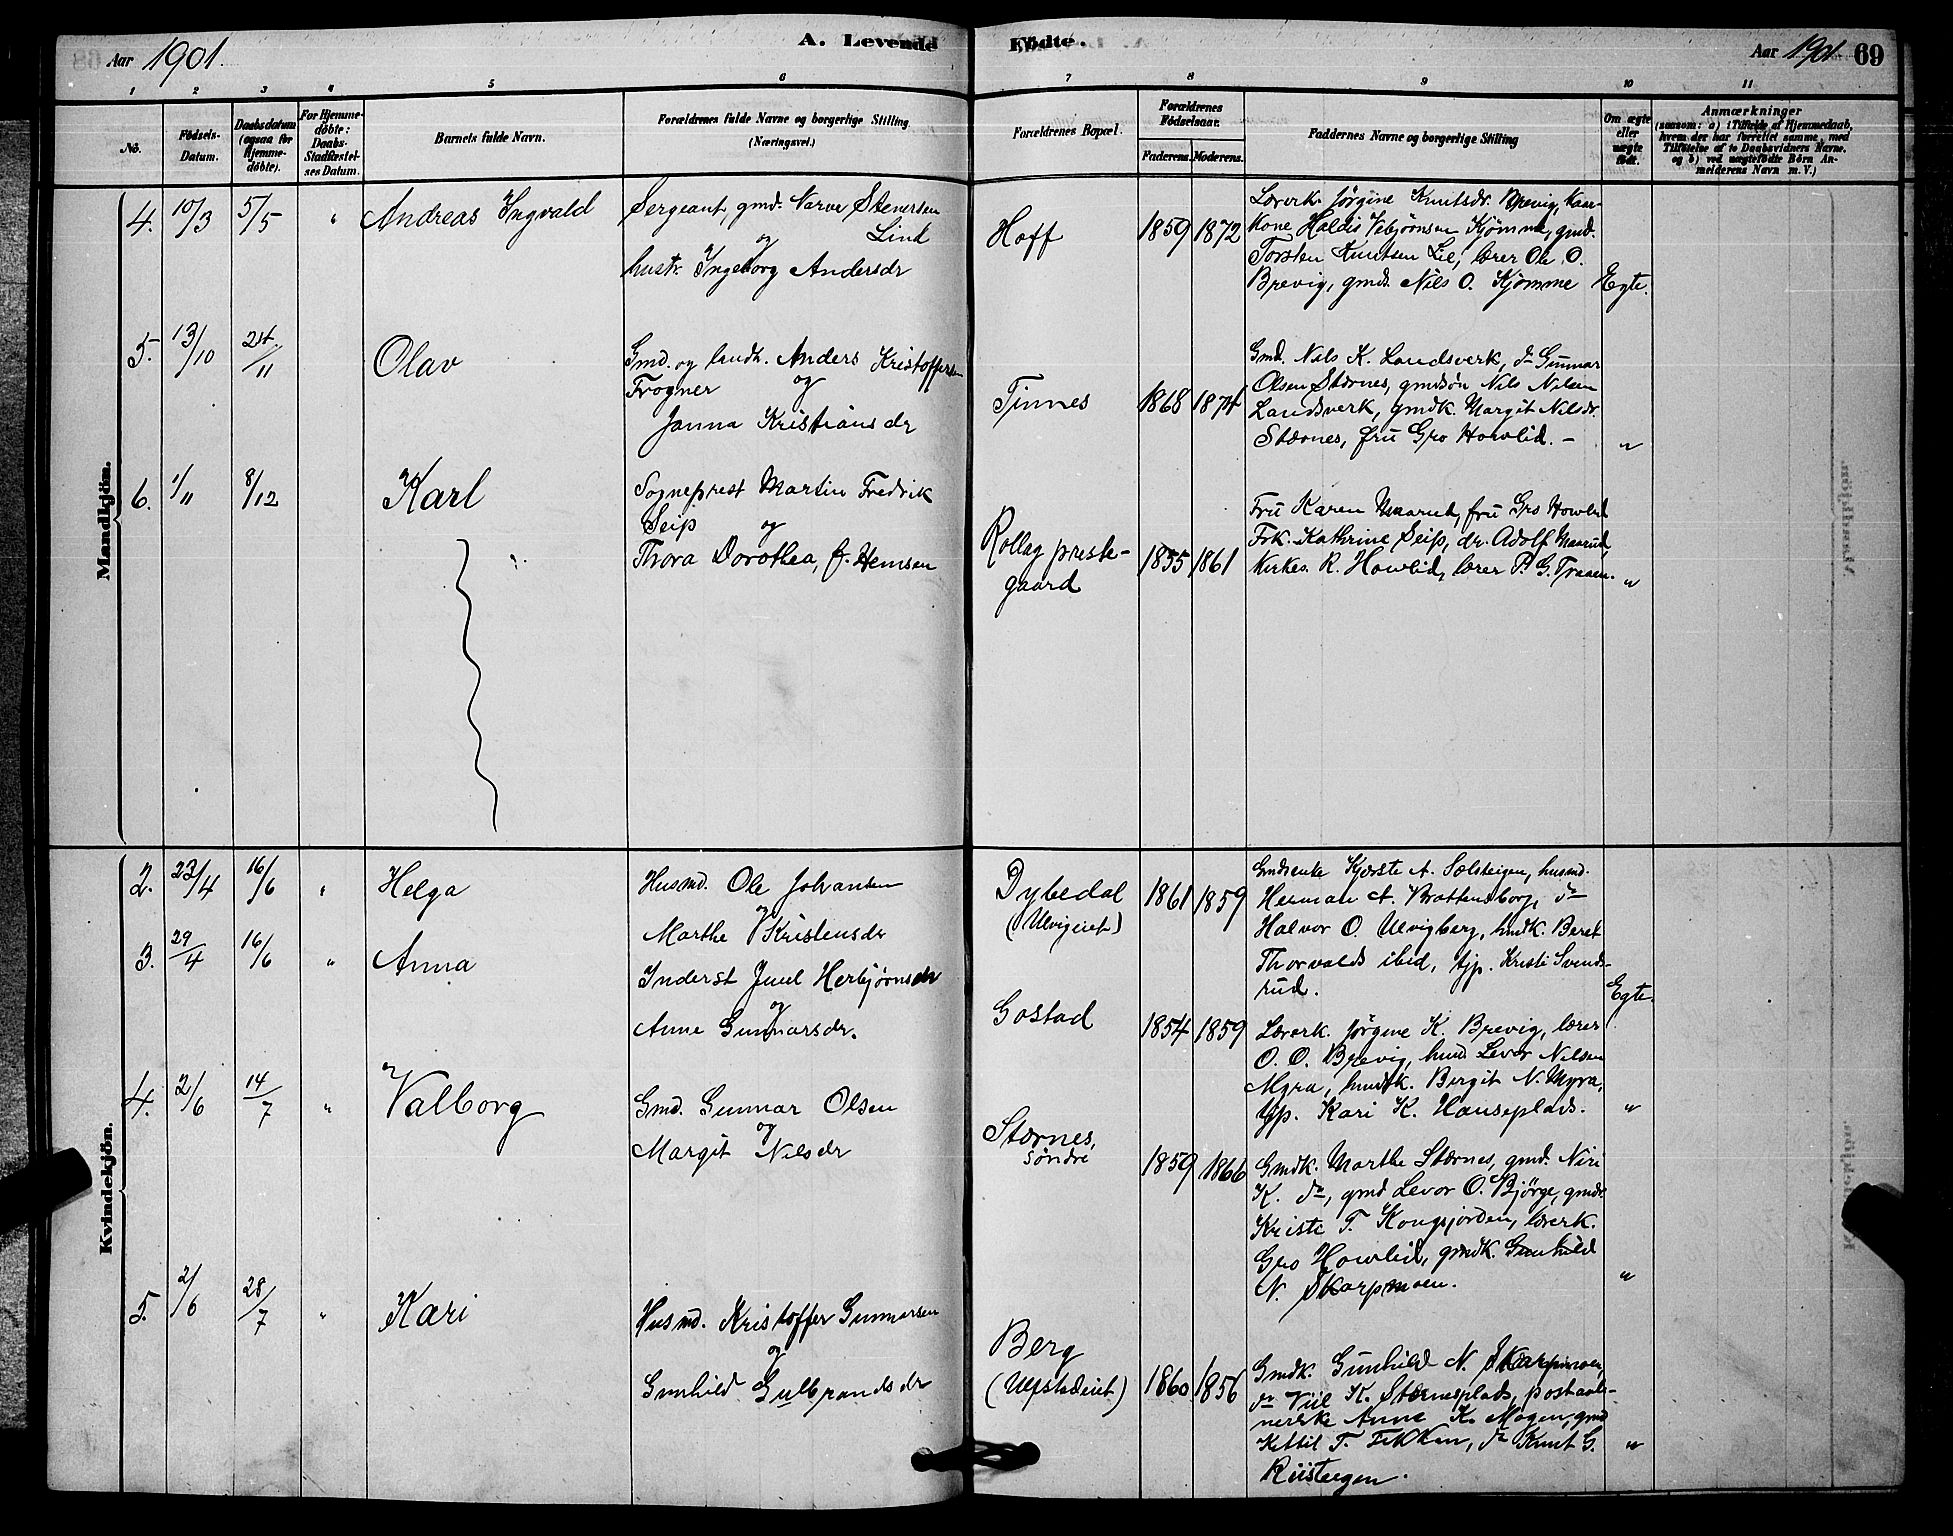 Aar 1901.
A. Levende Fødte.
Aar 1901. 69
1 2 3 4 5 6 7 8 9 10 11
No.
Fødsels-Datum.
Daabsdatum (ogsaa for Hjemme-døbte).
For Hjemme-døbte: Daabs-Stadfæstel-ses Datum.
Barnets fulde Navn.
Forældrenes fulde Navne og borgerlige Stilling
(Næringsvei.)
Forældrenes Bopæl.
Forældrenes Fødselsaar.
Faderens. Moderens.
Faddernes Navne og borgerlige Stilling
Om ægte eller uægte født.
Anmærkninger
(saasom: a) i Tilfælde af Hjemmedaab,
hvem der har forrettet samme, med
Tilføielse af to Daabsvidners Navne,
og b) ved uægtefødte Børn An-
melderens Navn m. V.)
Mandkjön.
4. 10/3 5/5 " Andreas Ingvald
Sergeant, gmd. Narve Stenersen
og Lind
hustr. Ingeborg Andersdr
Hoff 1859 1872
Lærerk. Jørgine Knutsdr. Brevig, kaar-
kone Haldis Vebjønsen Kjømme, gmd.
Torsten Knutsen Lie, lærer Ole O.
Brevig, gmd. Nils O. Kjømme Egte.
5. 13/10 24/11 Olav
Gmd. og landh. Anders Kristoffersen
Frogner og
Janna Kristiansdr
Tinnes 1868 1874
Gmd. Nils K. Landsverk, do Gunnar
Olsen Stærnes, gmdsøn Nils Nilsen
Landsverk, gmdk. Margit Nilsdr.
Stærnes, fru Gro Howlid. - "
6. 1/11 8/12 Karl
Sogneprest Martin Fredrik
Seip og
Thora Dorothea, f. Hemsen
Rollag preste-
gaard 1855 1861
Fru Karen Maarud, fru Gro Howlid
Frk. Kathrine Seip, dr. Adolf Maarud,
Kirkes. R. Howlid, lærer P. G. Traaen. "
Kvindekjön.
2. 23/4 16/6 " Helga
Husmd. Ole Johansen
og
Marthe Kristensdr
Dybedal
(Ulvigeiet) 1861 1859
Gmdenke Kjerste A. Sælsteigen, husmd.
Herman A. Brattensborg, do
Halvor O. Ulvigberg, hmdk. Beret
Thorvalds ibid, tjp. Kristi Svends-
rud. Egte.
3. 29/4 16/6 " Anna
Inderst Juul Herbjørnsdr
og
Anne Gunnarsdr.
Gostad 1854 1859
Lærerk. Jørgine K. Brevig, lærer
O. O. Brevig, husmd Levor Nilsen
Myra, husmdk. Bergit N. Myra,
tjp. Kari K. Hanseplads. "
4. 2/6 14/7 " Valborg
Gmd. Gunnar Olsen
og
Margit Nilsdr
Stærnes,
søndre 1859 1866
Gmdk. Marthe Stærnes, gmd. Niri
K. do, gmd Levor O. Bjørge, gmdk
Kriste T. Kongsjorden, lærerk.
Gro Howlid, gmdk. Gunhild
N. Skarpmoen. "
5. 2/6 28/7 " Kari
Husmd. Kristoffer Gunnarsen
og
Gunhild Gulbrandsdr
Berg
(Ulfstadeiet) 1860 1856
Gmdk. Gunhild N. Skarpmoen,
do Viil K. Stærnesplads, postaab-
nerske Anne K. Mogen, gmd
Kittil T. Fekken, do Knut G.
Riisteigen. "